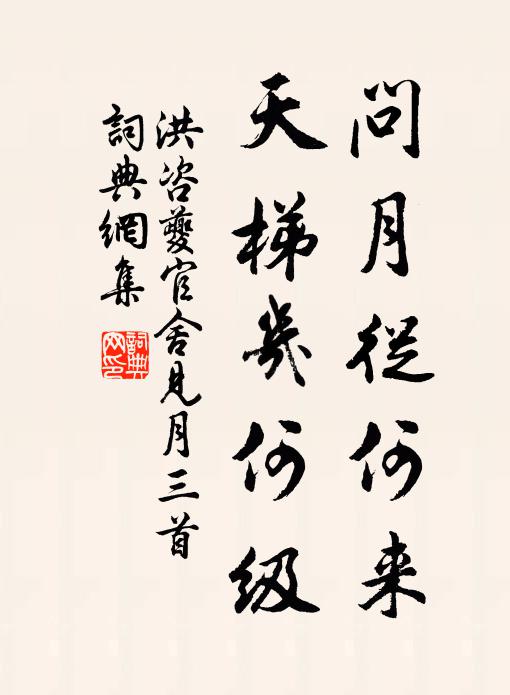 問月從何来
天梯幾何级
洪咨夔官舍見月三首
詞典網集
詞典
网印